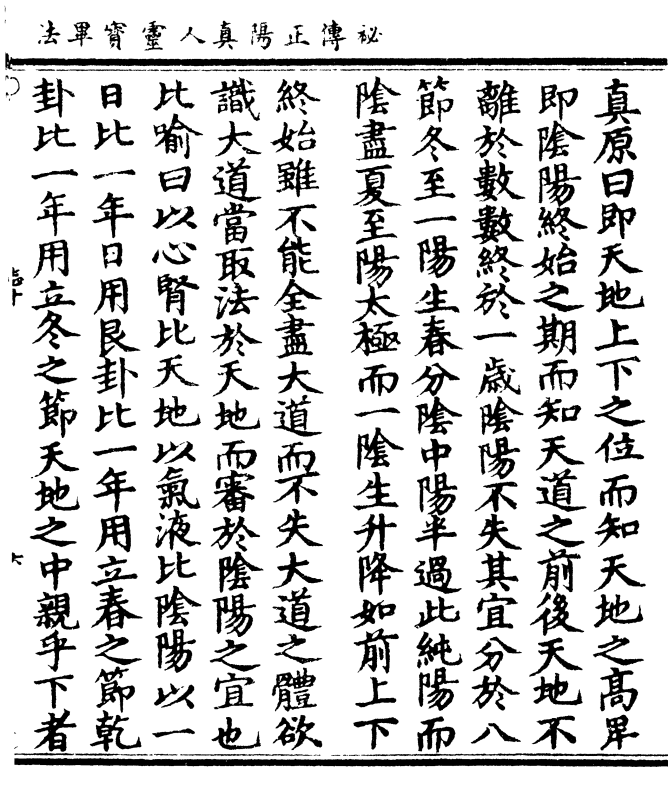 祕傳正陽真人靈寳畢法
真原曰即天地上下之位而知天地之髙卑
即隂陽終始之期而知天道之前後天地不
離於數數終於一歳隂陽不失其宜分於八
節冬至一陽生春分隂中陽半過此純陽而
隂盡夏至陽太極而一隂生升降如前上下
終始雖不能全盡大道而不失大道之體欲
識大道當取法於天地而審於隂陽之宜也
比喻曰以心腎比天地以氣液比隂陽以一
日比一年日用艮卦比一年用立春之節乾
卦比一年用立冬之節天地之中親乎下者
六